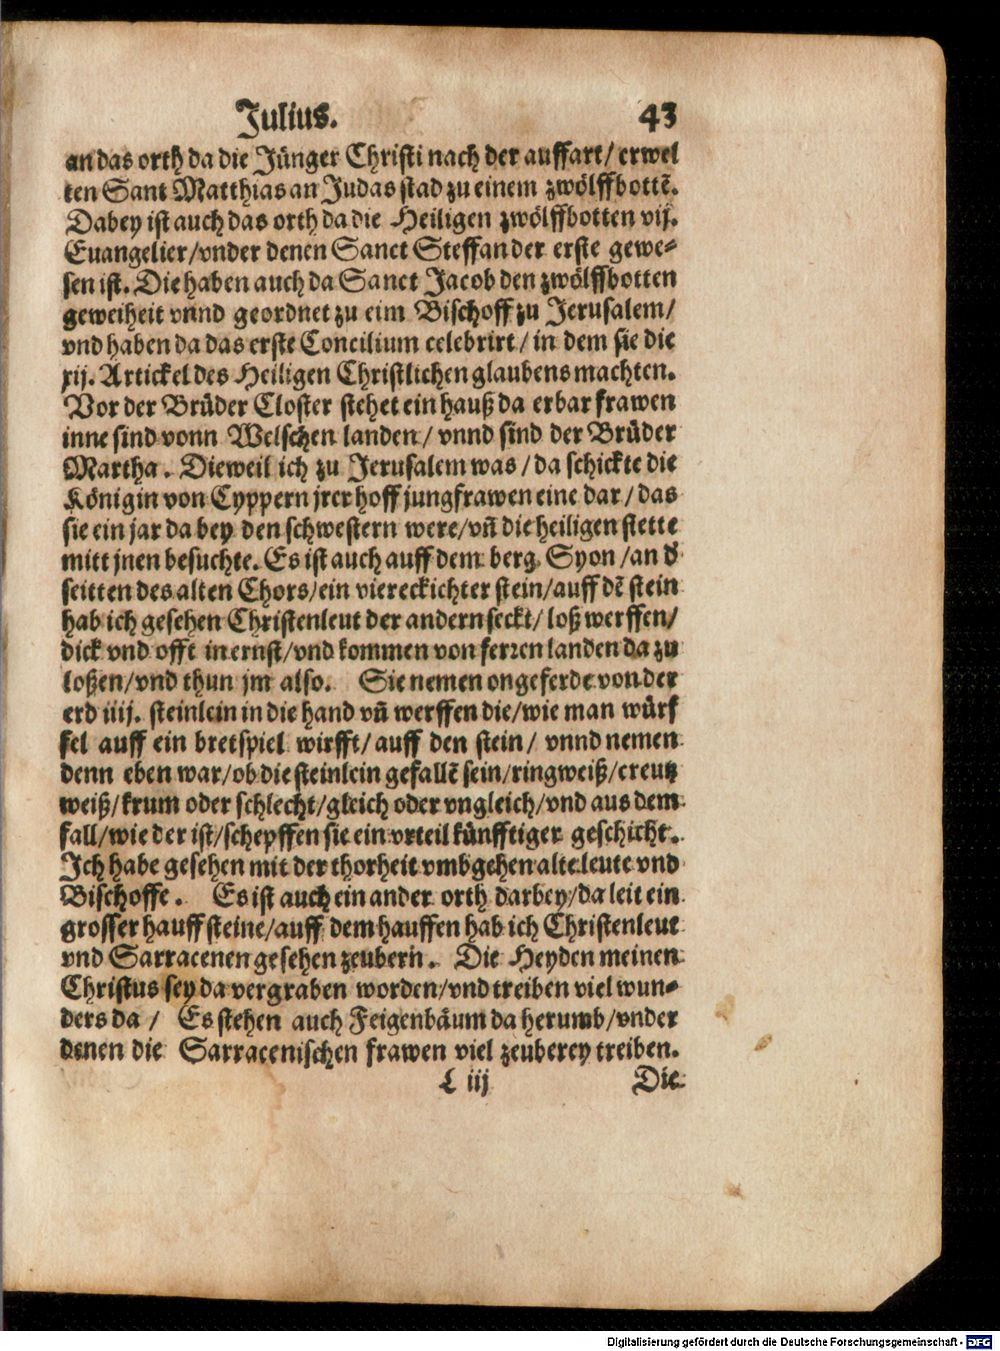 Julius. 43
an das orth da die Jünger Christi nach der auffart/ erwel
ten Sant Matthias an Judas stad zu einem zwölffbottē.
Dabey ist auch das orth da die Heiligen zwölffbotten vij.
Euangelier/vnder denen Sanct Steffan der erste gewe-
sen ist. Die haben auch da Sanct Jacob den zwölffbotten
geweiheit vnnd geordnet zu eim Bischoff zu Jerusalem/
vnd haben da das erste Concilium celebrirt/ in dem sie die
xij. Artickel des Heiligen Christlichen glaubens machten.
Vor der Brüder Closter stehet ein hauß da erbar frawen
inne sind vonn Welschen landen/ vnnd sind der Brüder
Martha. Dieweil ich zu Jerusalem was/da schickte die
Königin von Cyppern jrer hoff jungfrawen eine dar/ das
sie ein jar da bey den schwestern were/vñ die heiligen stette
mitt jnen besuchte. Es ist auch auff dem berg Syon/an d'
seitten des alten Chors/ein viereckichter stein/auff dē stein
hab ich gesehen Christenleut der andern seckt/ loß werffen/
dick vnd offt in ernst/vnd kommen von ferren landen da zu
loßen/vnd thun jm also. Sie nemen ongeferde von der
erd iiij. steinlein in die hand vñ werffen die/wie man würf
fel auff ein bretspiel wirfft/ auff den stein/ vnnd nemen
denn eben war/ob die steinlein gefallē sein/ringweiß/creutz
weiß/krum oder schlecht/gleich oder vngleich/vnd aus dem
fall/wie der ist/schepffen sie ein vrteil künfftiger geschicht.
Ich habe gesehen mit der thorheit vmbgehen alte leute vnd
Bischoffe. Es ist auch ein ander orth darbey/da leit ein
grosser hauff steine/auff dem hauffen hab ich Christenleut
vnd Sarracenen gesehen zeubern. Die Heyden meinen
Christus sey da vergraben worden/vnd treiben viel wun-
ders da/ Es stehen auch Feigenbäum da herumb/vnder
denen die Sarracenischen frawen viel zeuberey treiben.
L iij Die
Digitalisierung gefördert durch die Deutsche Forschungsgemeinschaft - DFG